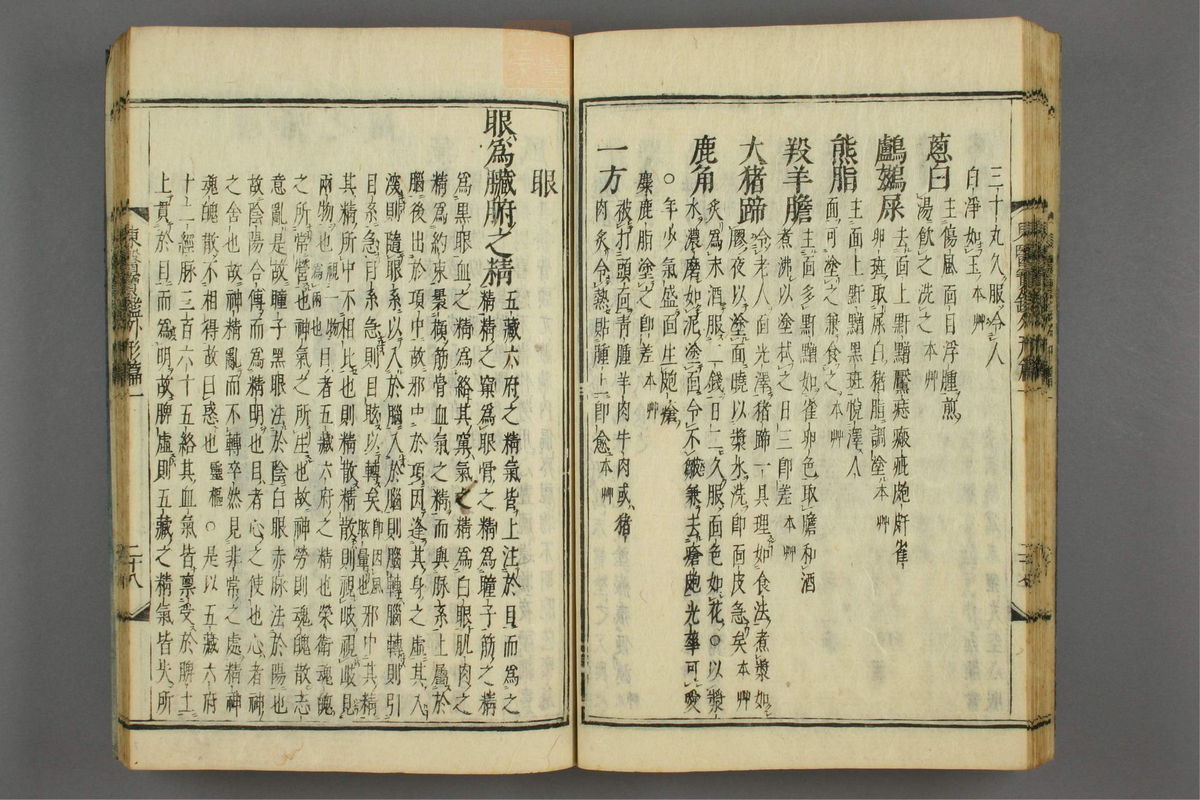 三十丸久服令人
白淨如玉本艸
葱白主傷風面目浮腫煎
湯飲之洗之本艸
鸕鷀屎去面上䵟䵳黶痣瘢疵皰皯雀
卵斑取屎白猪脂調塗本艸
熊脂主面上䵟䵳黑斑悅澤人
面可塗之兼食之本艸
羖羊膽主面多䵟䵳如雀卵色取膽和酒
煮沸以塗拭之日三卽差本艸
大猪蹄令老人面光澤猪蹄一具理如食法煮漿如
膠夜以塗面曉以漿水洗卽面皮急矣本艸
鹿角炙爲末酒服二錢日二久服面色如花○以漿
水濃磨如泥塗面令不皺兼去瘡皰光華可愛
○年少氣盛面生皰瘡
麋鹿脂塗之卽差本艸
一方被打頭面靑腫羊肉牛肉或猪
肉炙令熱貼腫上卽愈本艸
眼
眼爲臟腑之精五藏六府之精氣皆上注於目而爲之
精精之窠爲眼骨之精爲瞳子筋之精
爲黑眼血之精爲絡其窠氣之精爲白眼肌肉之
精爲約束裹擷筋骨血氣之精而與脉系上屬於
腦後出於項中故邪中於項因逢其身之虛其入
深則隨眼系以入於腦入於腦則腦轉腦轉則引
目系急目系急則目眩以轉矣卽因風眩暈也邪中其精
其精所中不不相比也則精散精散則視岐視岐見
兩物也視一物爲兩也目者五藏六府之精也榮衛魂魄
之所常營也神氣之所生也故神勞則魂魄散志
意亂是故瞳子黑眼法於陰白眼赤脉法於陽也
故陰陽合傳而爲精明也目者心之使也心者神
之舍也故神精亂而不轉卒然見非常之處精神
魂魄散不相得故曰惑也靈樞○是以五藏六府
十二經脉三百六十五絡其血氣皆稟受於脾土
上貫於目而爲明故脾虛則五藏之精氣皆失所
東醫寶鑑外形篇一
二十八